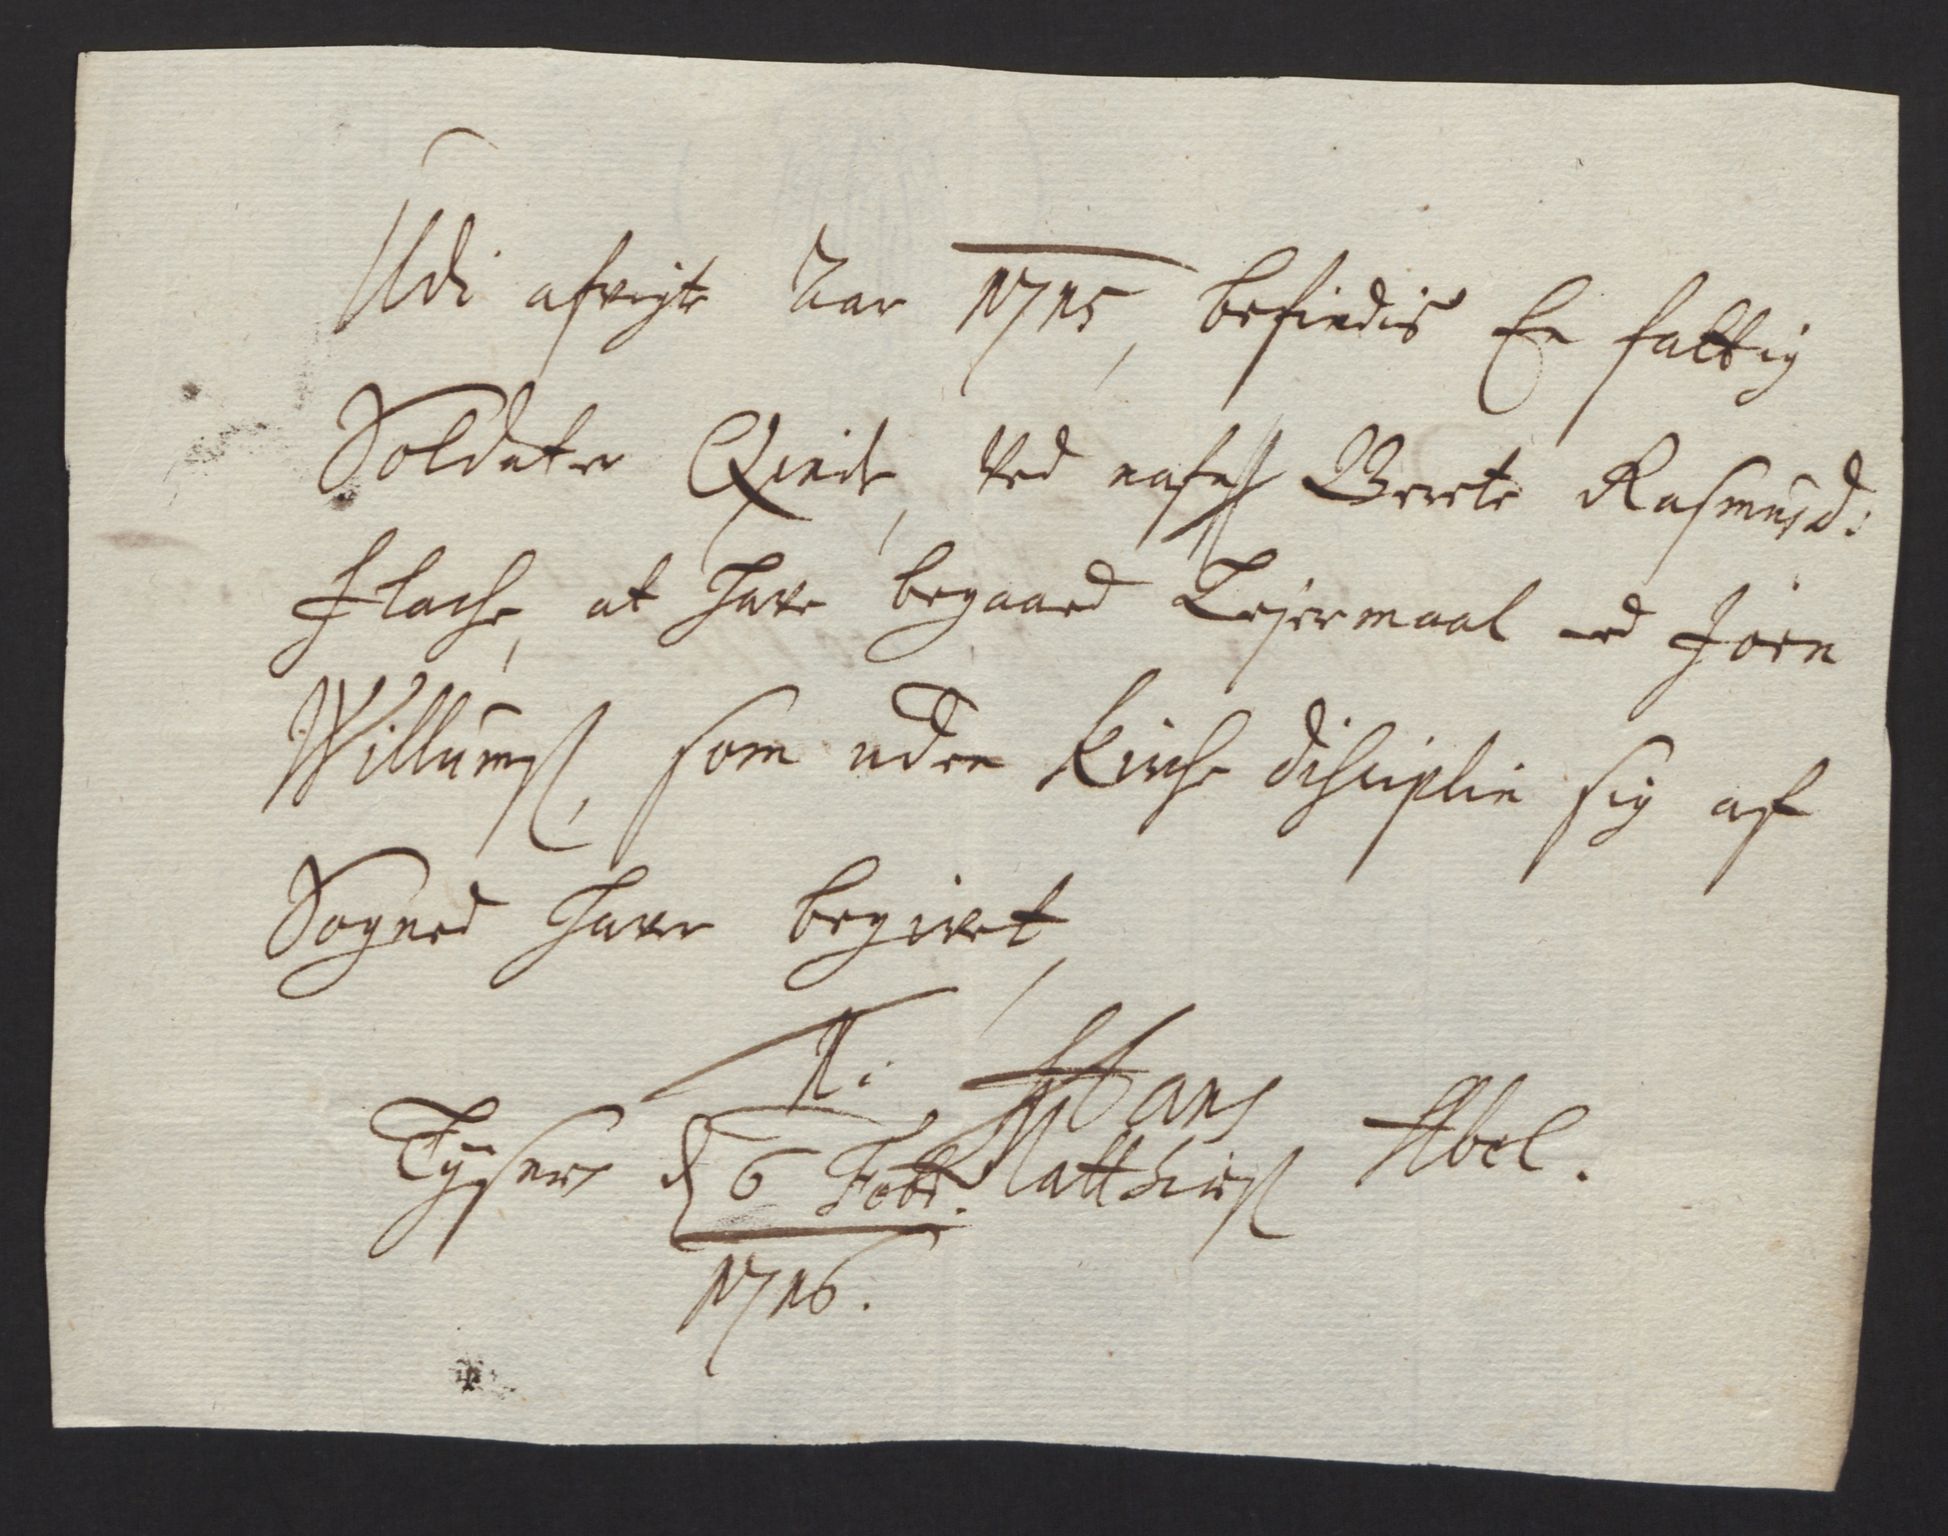 Udi afvigte Aar 1715, befindis En fattig
Soldater Qinde, ved nafn Berete Rasmusd:
Flache, at have begaaed Lejermaal med Jörn
Willums, som uden Kirche disciplin sig af
Sogned haver begivet,
N: Hans
Tysnes d 6 Febr. Matthies Abel.
1716.